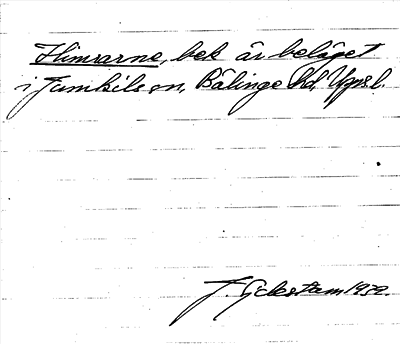 Himrarne, bek är beläget
i Jumkils sn, Bälinge hd, Uppsl.
J. Gjckstam 1939.